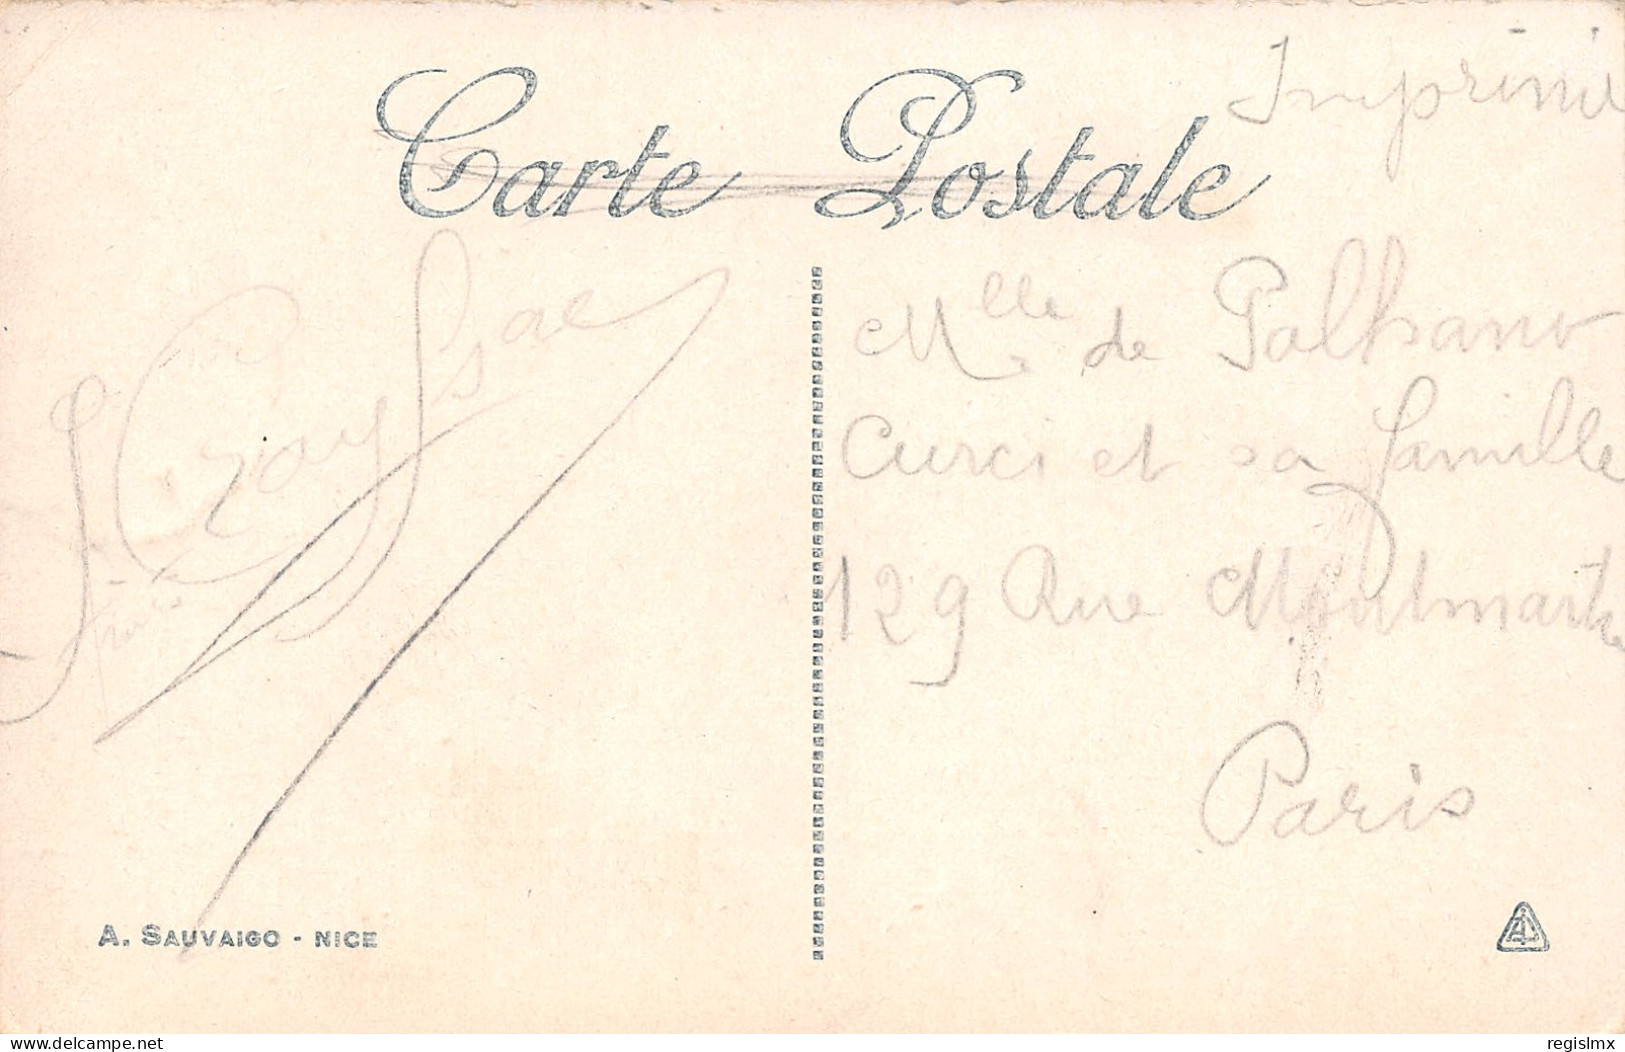 Carte Postale
Imprimé
Mlle de Palhano
Curci et sa famille
129 Rue Montmartre
Paris
A. SAUVAIGO - NICE
www.delcampe.net
regislmx